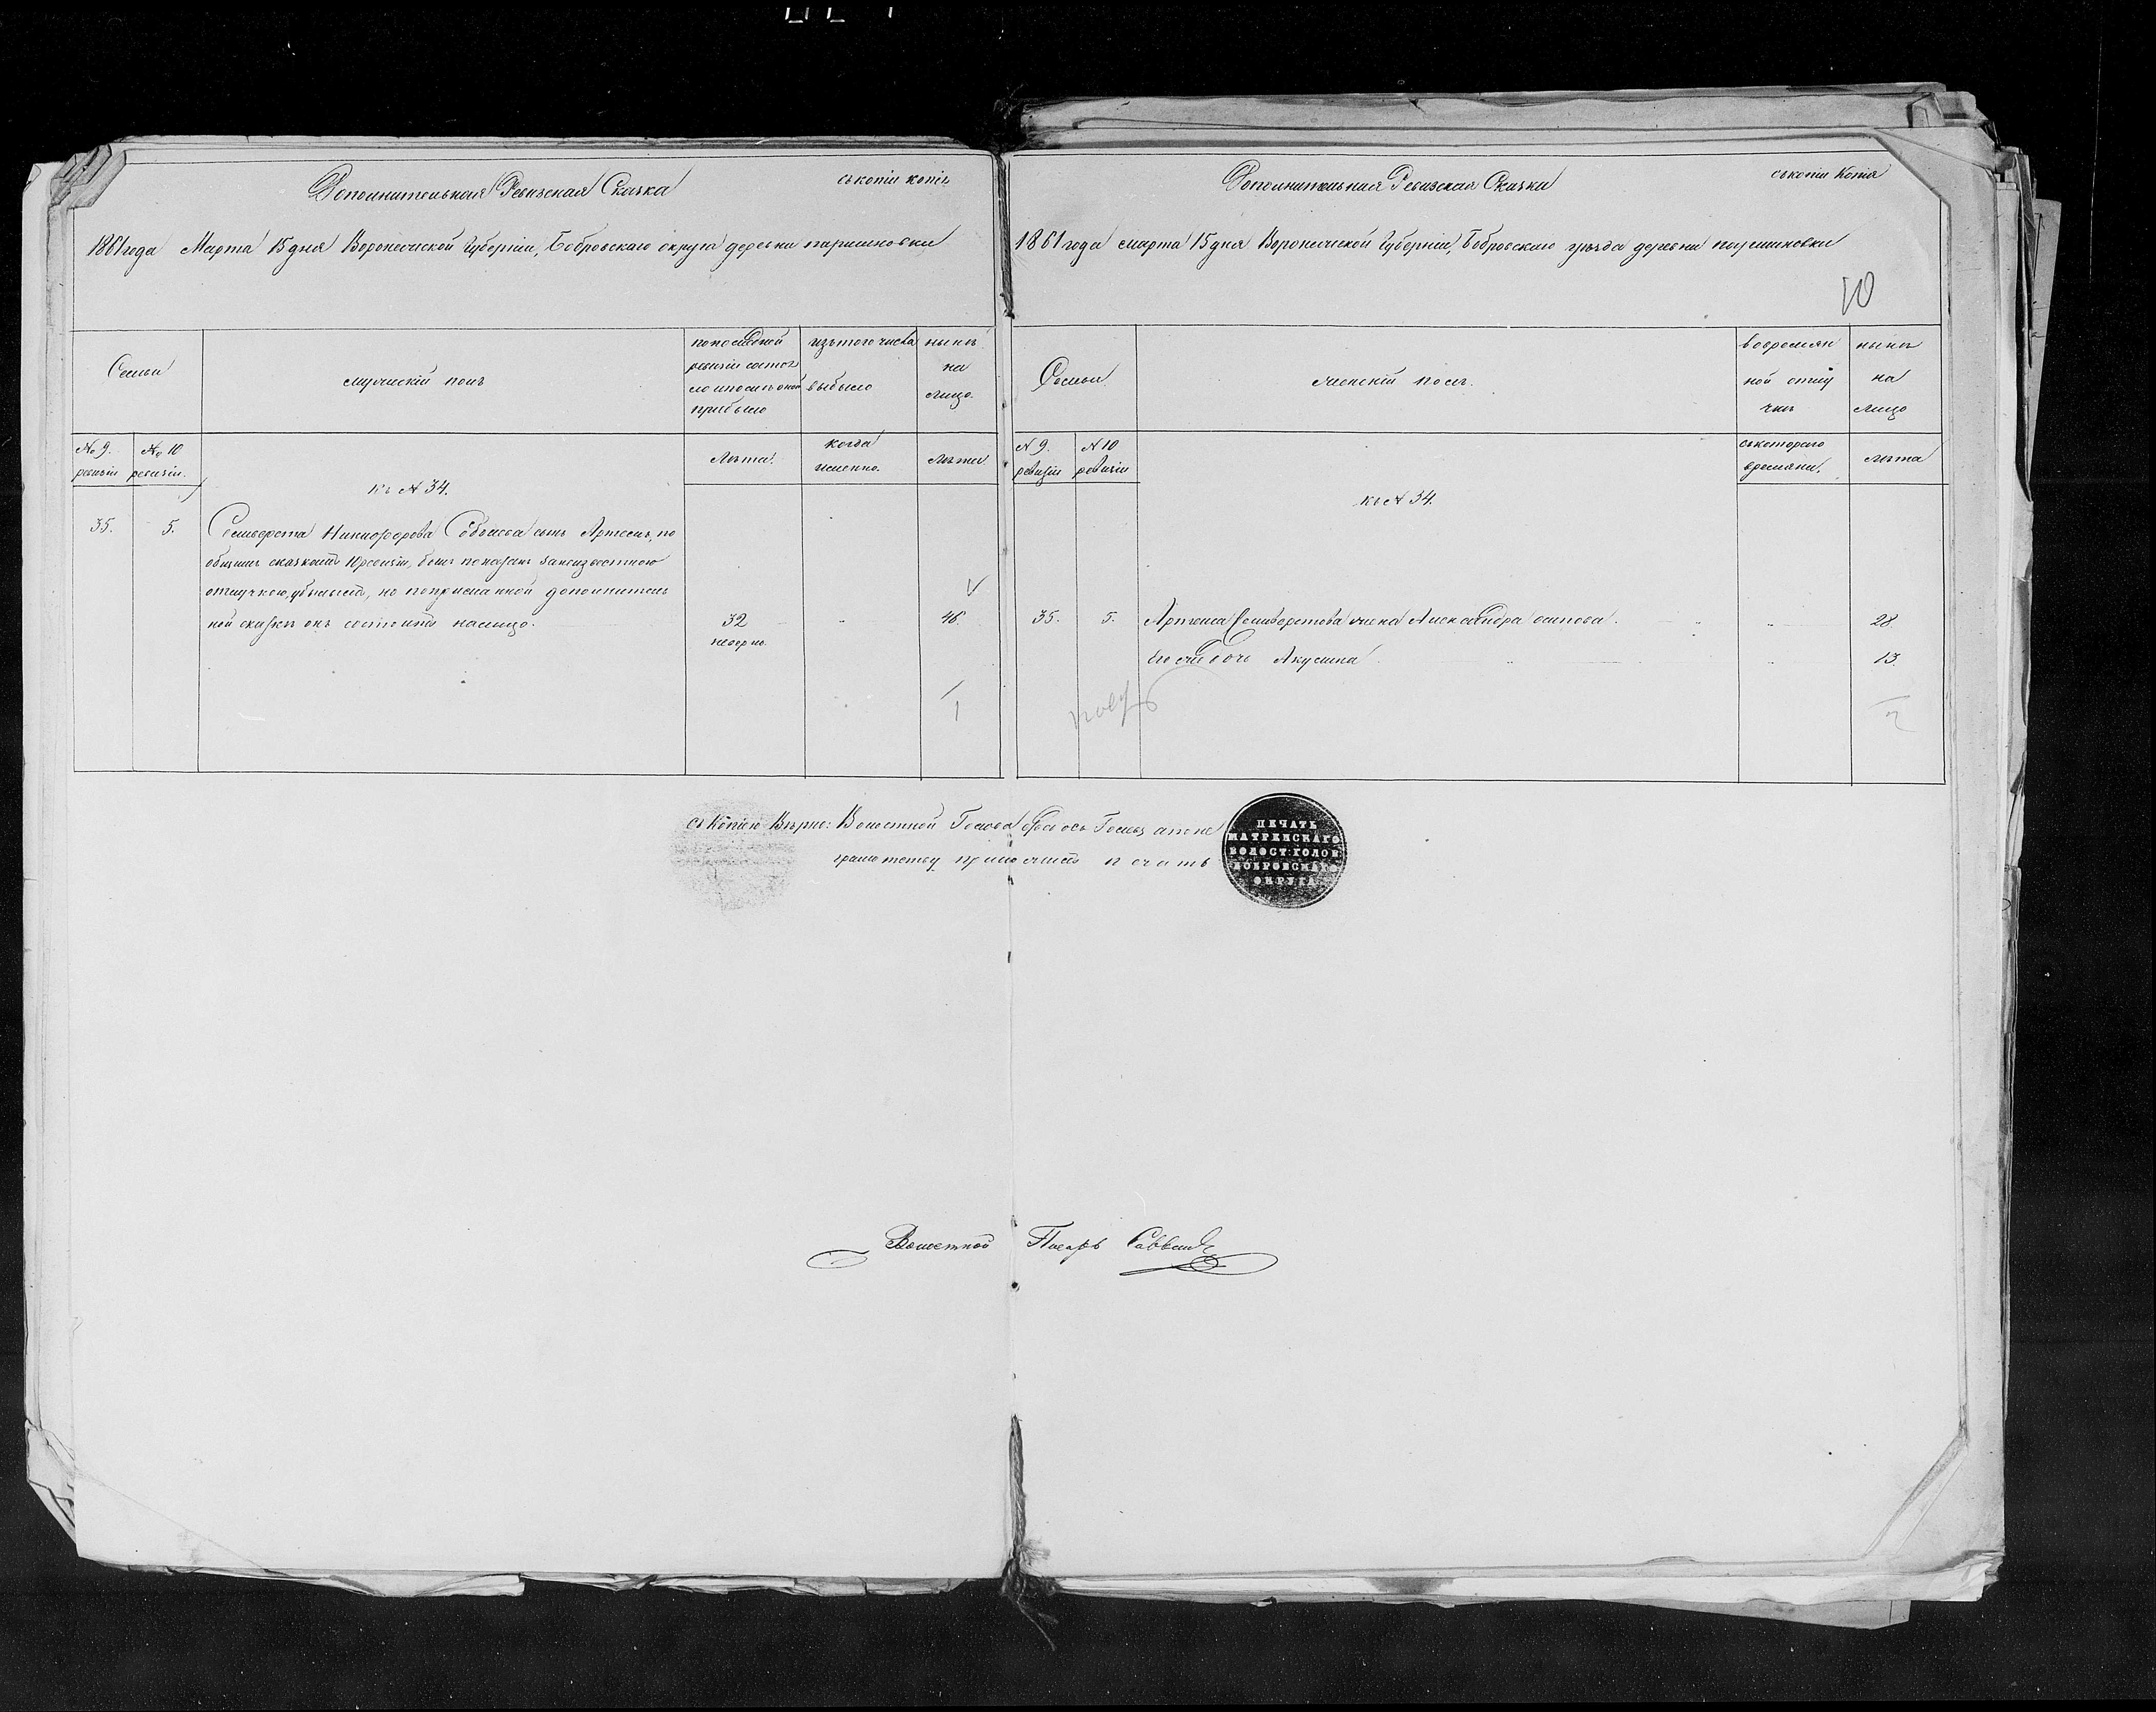 Дополнительная Ревизская Сказка
съ копіи копія
1861 года Марта 15 дня Воронежской Губерніи, Бобровскаго округа деревни паршиновки
Семьи
мужескій полъ
по последней ревизіи состояло и после оной прибыло
изъ того числа выбыло
ныне на лицо.
№ 9. ревизіи
№ 10 ревизіи.
Лѣта.
когда именно.
Лѣта
къ № 34.
35. 5. Семиверста Никифорова сынъ Артемъ, по
общимъ сказкамъ 10 ревизіи, былъ показанъ за неизвестною
отлучкою, убылымъ, но по присланной дополнитель
ной сказкѣ онъ состоитъ на лицо. 32 46.
неверно.
1
Дополнительная Ревизская Сказка
съ копіи Копія
1861 года марта 15 дня Воронежской Губерніи, Бобровскаго уѣзда деревни паршиновки
10
Семьи
женскій полъ.
во времян ной отлу чкѣ
ныне на лицо
№ 9. ревизіи
№ 10 ревизіи
съ котораго времяни.
лѣта
къ № 34.
35. 5. Артема Семиверстова жена Александра осипова. 28.
Его же дочь Акулина 13.
2
съ Копіею Вѣрно: Волостной Голова
грамотству приложилъ печать
ПЕЧАТЬ
МАТРЕНСКАГО
ВОЛОСТ: ГОЛОВ
БОБРОВСКАГО
ОКРУГА
Волостной Писарь